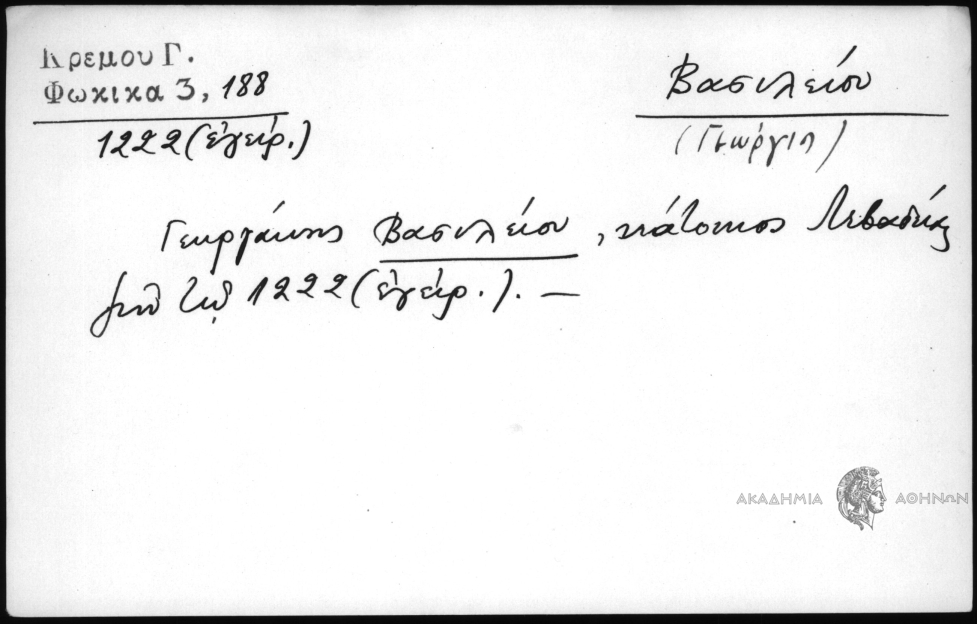 Κρεμου Γ.
Φωκικα 3, 188
1222 (ἐγείρ.)
Βασιλείου
(Γεώργιος)
Γεωργάκης Βασιλείου, κάτοικος Λεβαδείας
1222 (ἐγείρ.). —
ΑΚΑΔΗΜΙΑ ΑΘΗΝΩΝ